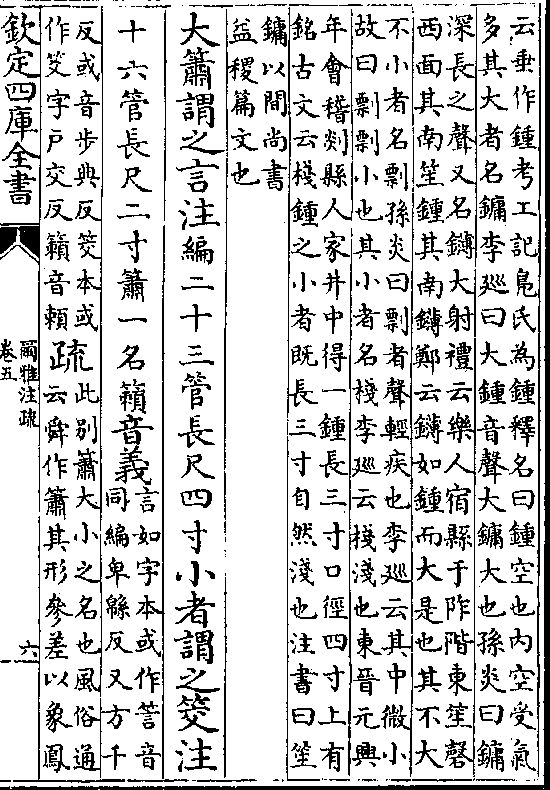 云垂作鍾考工記鳧氏為鍾釋名曰鍾空也内空受氣
多其大者名鏞李廵曰大鍾音聲大鏞大也孫炎曰鏞
深長之聲又名鎛大射禮云樂人宿縣于阼階東笙磬
西面其南笙鍾其南鎛鄭云鎛如鍾而大是也其不大
不小者名剽孫炎曰剽者聲輕疾也李廵云其中微小
故曰剽剽小也其小者名棧李廵云棧淺也東晉元興
年會稽剡縣人家井中得一鍾長三寸口徑四寸上有
銘古文云棧鍾之小者既長三寸自然淺也注書曰笙
鏞以間尚書
益稷篇文也
大簫謂之言注編二十三管長尺四寸小者謂之筊注
十六管長尺二寸簫一名籟音義
言如字本或作䇾音
同編卑緜反又方千
反或音步典反筊本或
作筊字戸交反籟音頼
疏
此别簫大小之名也風俗通
云舜作簫其形參差以象鳳
欽定四庫全書
爾雅注疏
卷五
六